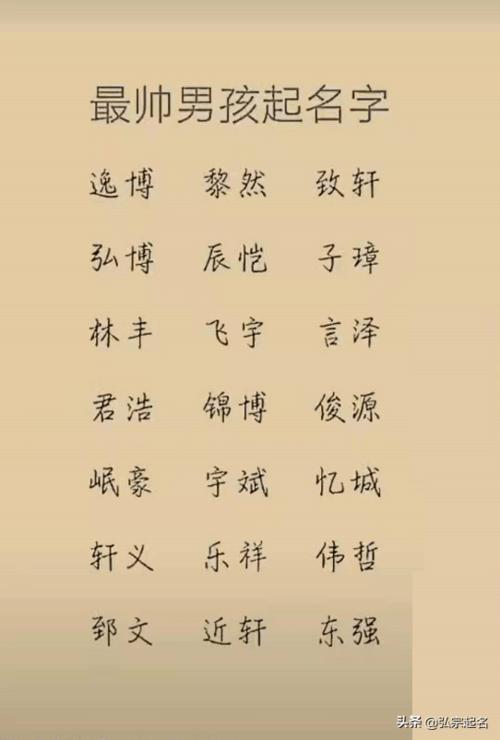 最帅男孩起名字
逸博 黎然 致轩
弘博 辰恺 子璋
林丰 飞宇 言泽
君浩 锦博 俊源
岷豪 宇斌 忆城
轩义 乐祥 伟哲
郅文 近轩 东强
头条 @弘宗起名